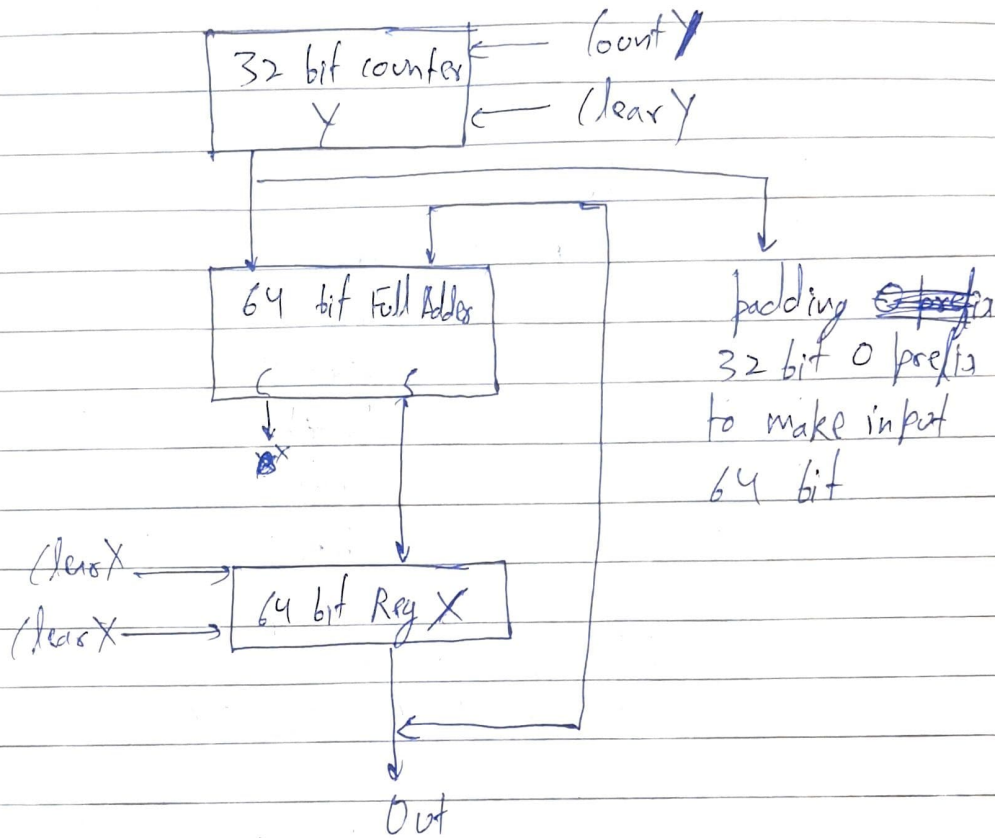 32 bit counter
Y
Count Y
Clear Y
64 bit Full Adder
C S
x
padding
32 bit 0 prefix
to make input
64 bit
Clear X
Clear X
64 bit Reg X
Out